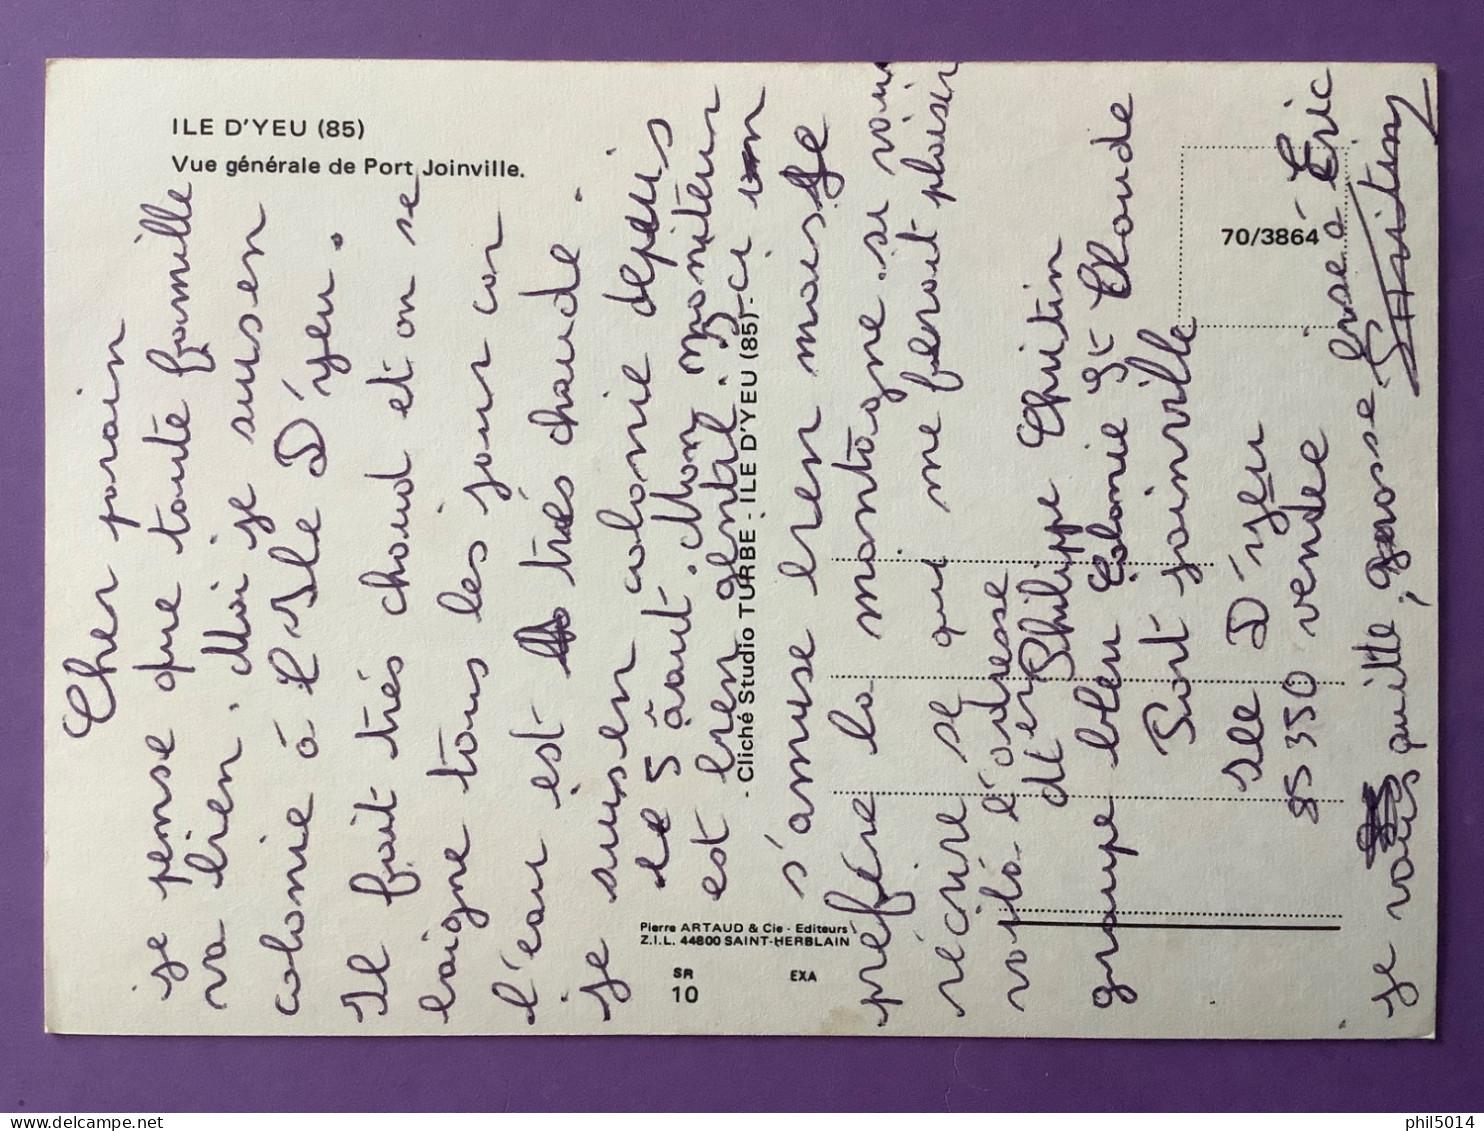 ILE D'YEU (85)
Vue générale de Port Joinville.
Cher parain
je pense que toute famille
va bien. Moi je suis en
colonie à l'Ile D'yeu.
Il fait très chaud et on se
baigne tous les jour car
l'eau est très chaude.
je suis en colonie depuis
le 5 août. Mon moniteur
est bien gental. Ici on
s'amuse bien mais je
préfére la montagne. si vous
récrire se qui me feroit plaisir
voila l'adresse
Philippe
groupe bleu Colonie St Claude
Port joinville
Ile D'yeu
85 350 vendée
je vous quitte, grosse bise à Eric
- Cliché Studio TURBE - ILE D'YEU (85) -
Pierre ARTAUD & Cie - Editeurs
Z.I.L. 44800 SAINT-HERBLAIN
SR
10
EXA
70/3864
phil5014